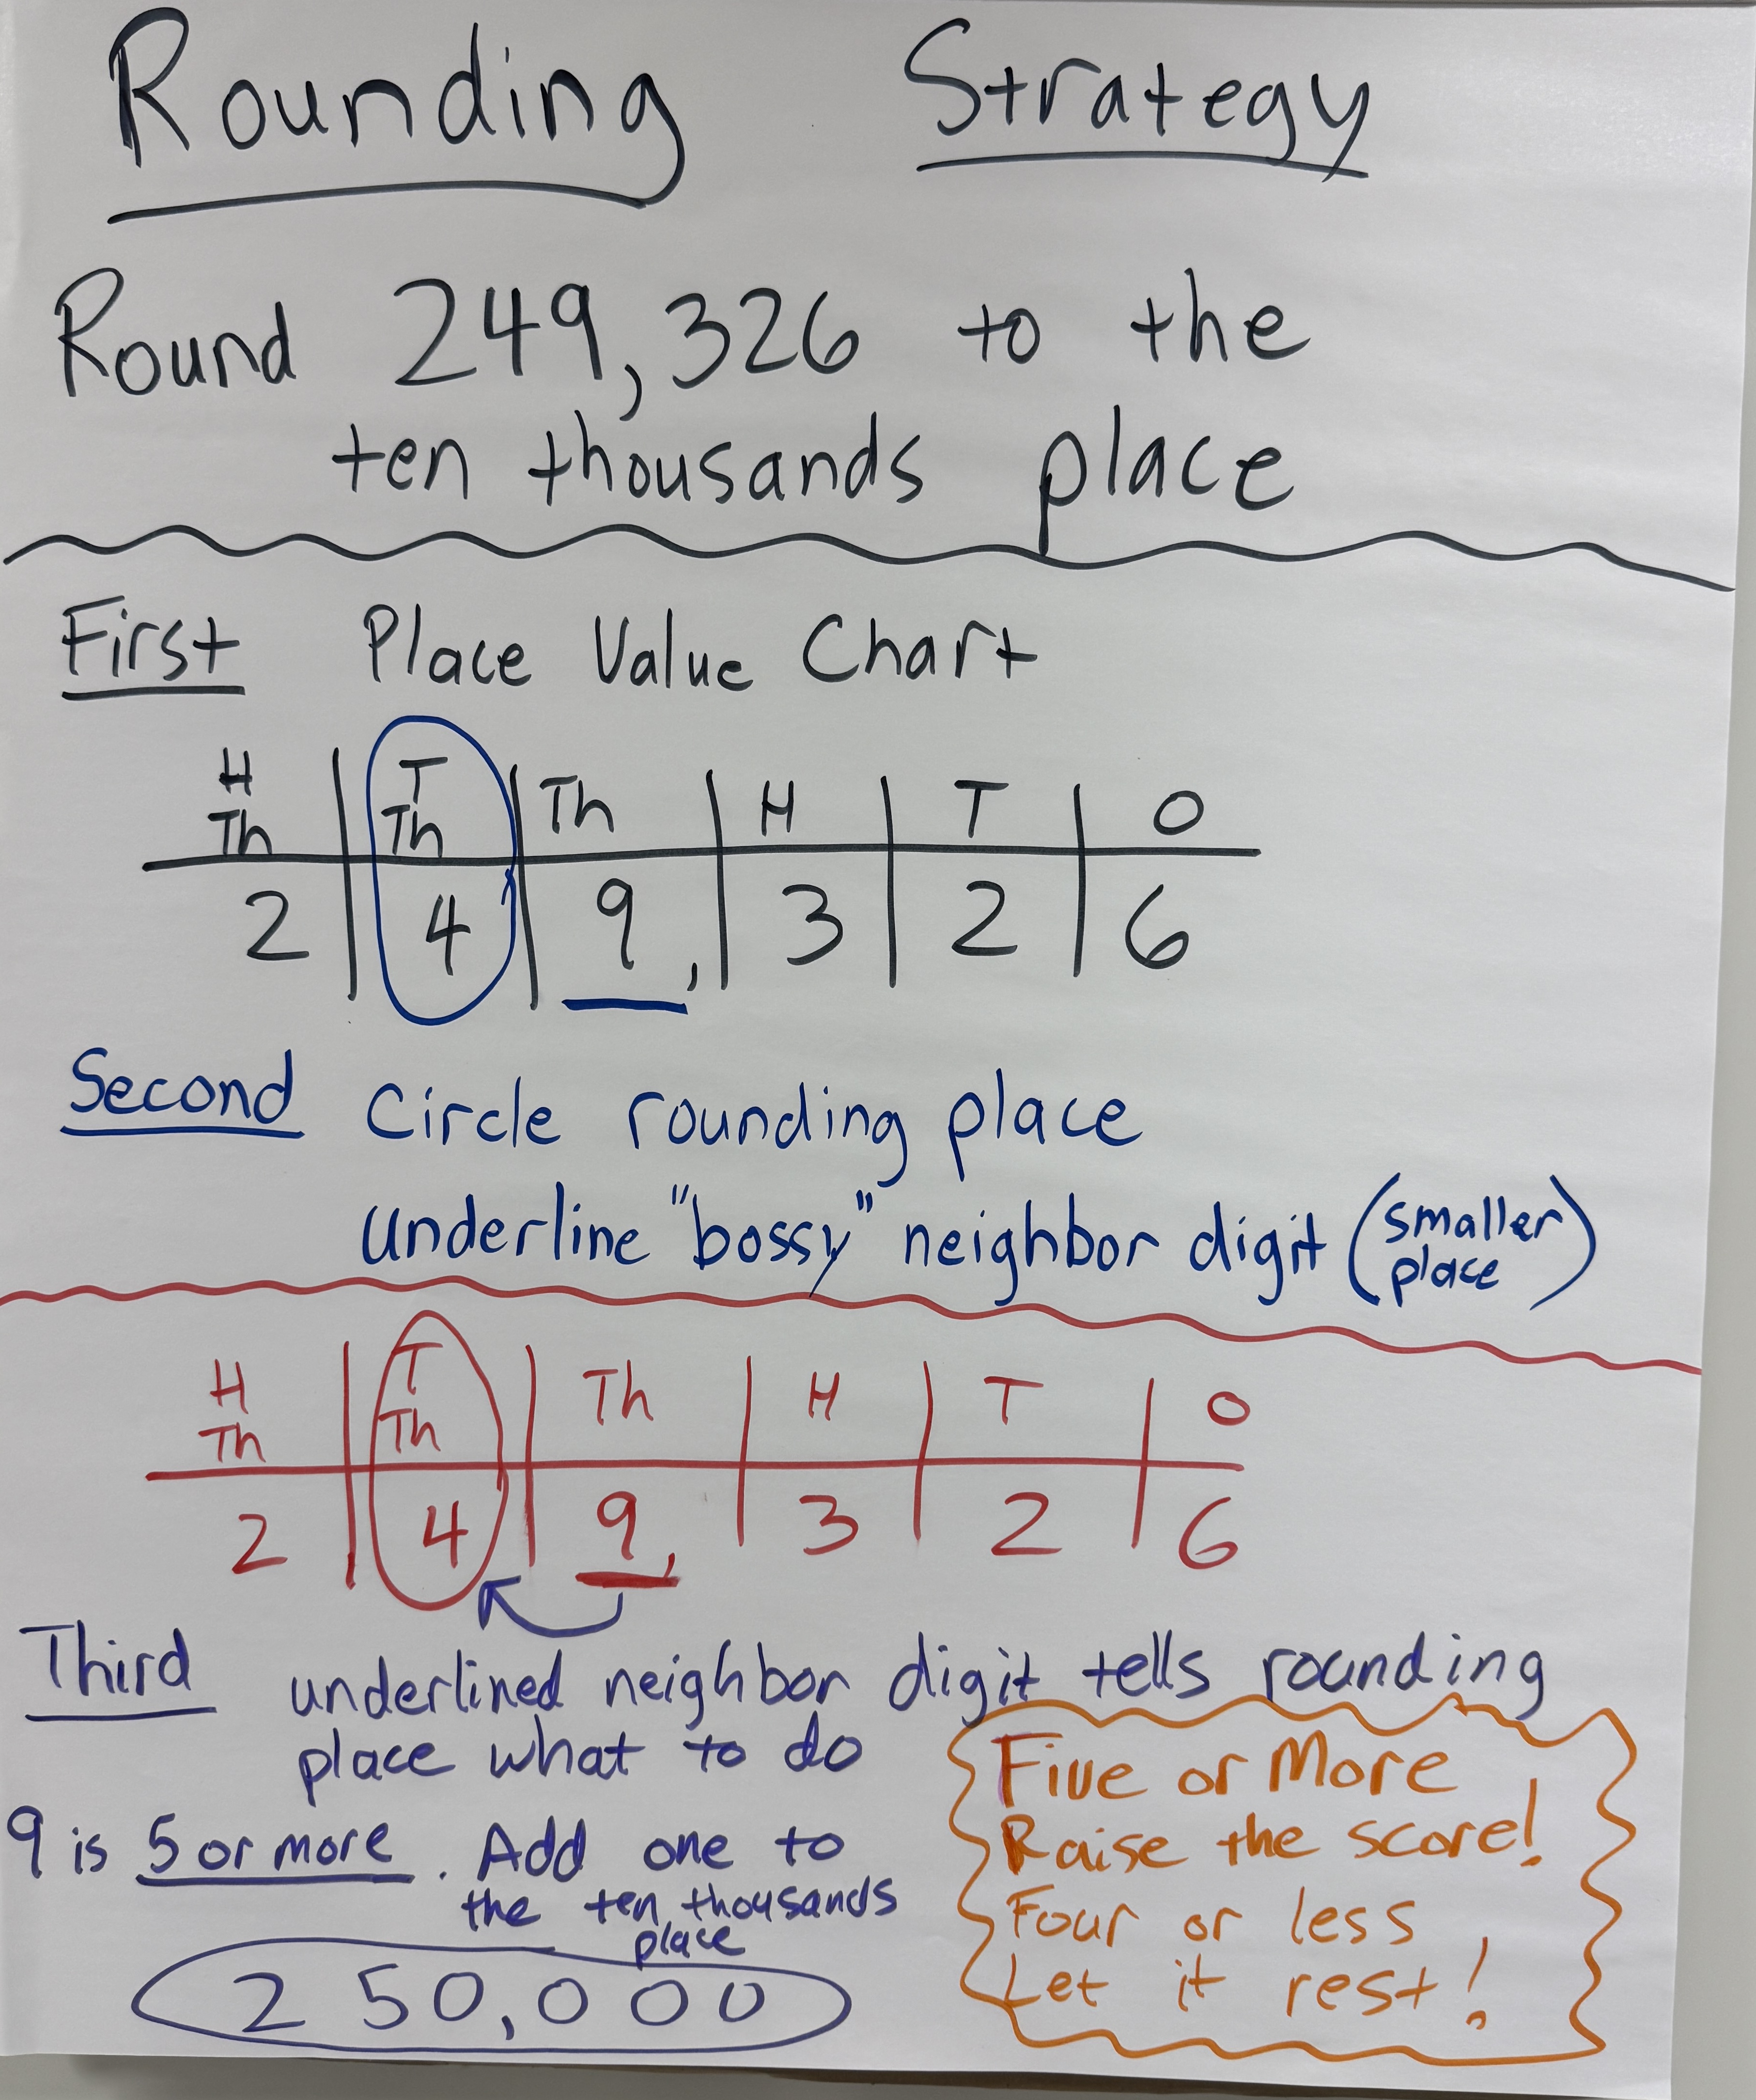 Rounding Strategy
Round 249,326 to the
ten thousands place
First Place Value Chart
H Th | T Th | Th | H | T | O
2 | 4 | 9, | 3 | 2 | 6
Second Circle rounding place
underline "bossy" neighbor digit (smaller place)
H Th | T Th | Th | H | T | O
2 | 4 | 9, | 3 | 2 | 6
Third underlined neighbor digit tells rounding
place what to do
9 is 5 or more. Add one to
the ten thousands
place
250,000
Five or More
Raise the score!
Four or less
Let it rest!